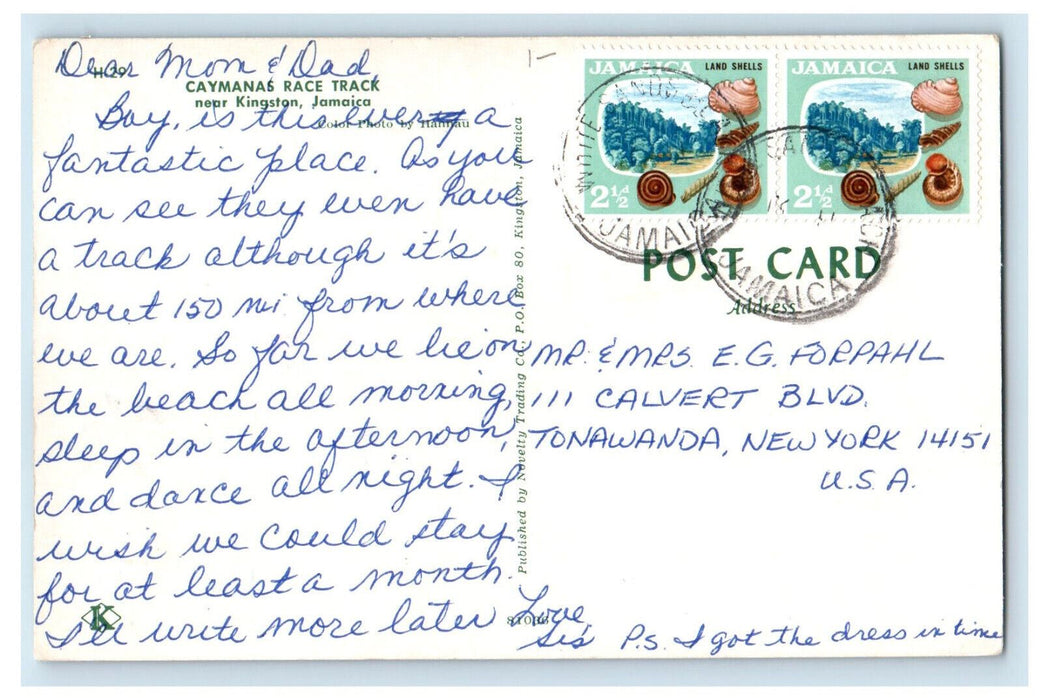 H-29
CAYMANAS RACE TRACK
near Kingston, Jamaica
Color Photo by Hannau
Dear Mom & Dad,
Boy, is this ever a
fantastic place. As you
can see they even have
a track although it's
about 150 mi from where
we are. So far we lie on
the beach all morning,
sleep in the afternoon,
and dance all night. I
wish we could stay
for at least a month.
I'll write more later
Love,
Sis
P.S. I got the dress in time
K
Published by Novelty Trading Co. P.O. Box 80, Kingston, Jamaica
1-
JAMAICA LAND SHELLS
2½d
JAMAICA LAND SHELLS
2½d
WHITE SANDS BEACH
JAMAICA
JAMAICA
POST CARD
Address
MR. & MRS. E.G. FORPAHL
111 CALVERT BLVD.
TONAWANDA, NEW YORK 14151
U.S.A.